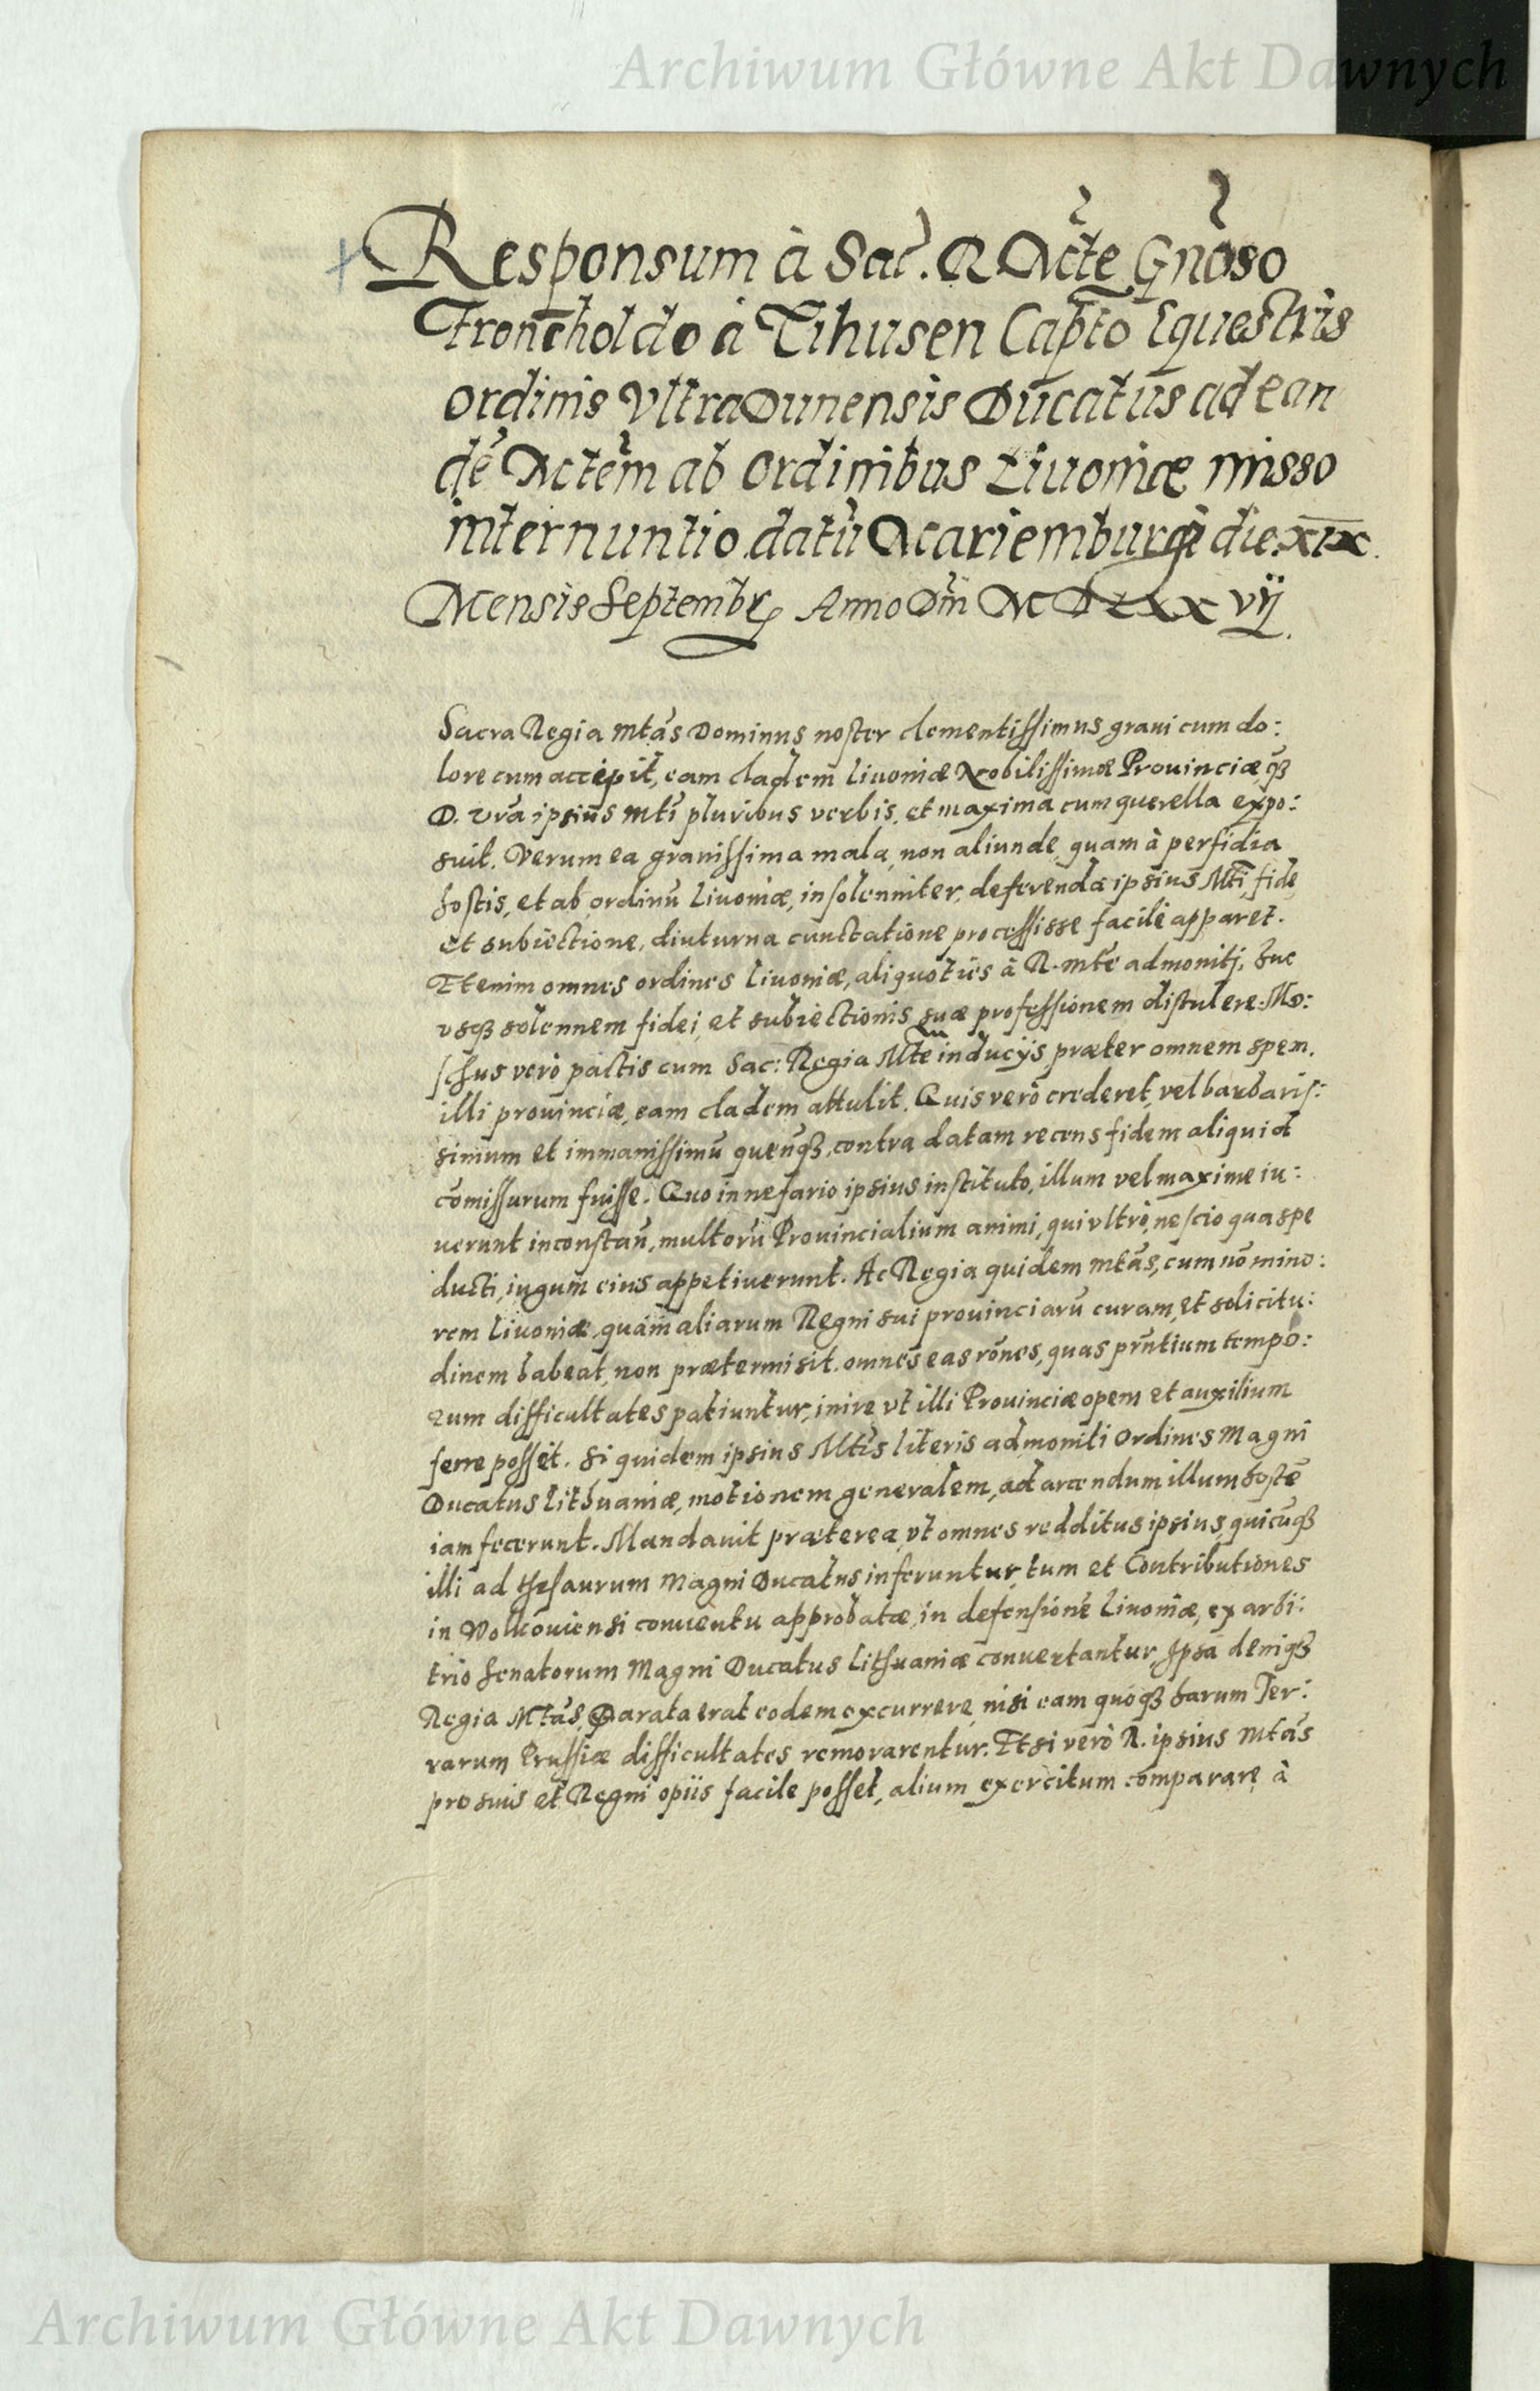 Archiwum Główne Akt Dawnych
Responsum à Sac. R Mcte Gnoso
Froncholdo à Tihusen Capto Equestris
ordinis VltraDunensis Ducatus ad ean
dē Mctem ab Ordinibus Liuoniæ misso
internuntio datū Mariemburgi die XIX.
Mensis Septembr Anno Dni MDLXXvij.
Sacra Regia Mtas Dominus noster clementissimus graui cum do:
lore cum accepit, eam cladem Liuoniæ Nobilissimæ Prouinciæ, qȝ
D. vra ipsius Mti pluribus verbis, et maxima cum querella expo:
suit. Verum ea grauissima mala, non aliunde, quam à perfidia
hostis, et ab ordinū Liuoniæ, in solenniter, deferenda ipsius Mti, fide
et subiectione, diuturna cunctatione processisse facile apparet.
Etenim omnes ordines Liuoniæ, aliquoties à R. Mte admonitj, huc
vsqȝ solennem fidej, et subiectionis suæ professionem distulere: Mo:
schus verò pactis cum Sac: Regia Mte inducijs præter omnem spem,
illi prouinciæ, eam cladem attulit. Quis verò crederet, vel barbaris:
simum et immanissimū quenqȝ, contra datam recens fidem aliquid
comissurum fuisse. Quo in nefario ipsius instituto, illum vel maxime iu:
uerunt inconstan, multorū Prouincialium animi, qui vltrò, nescio qua spe
ducti, iugum eius appetiuerunt. Ac Regia quidem Mtas, cum nō mino:
rem Liuoniæ, quàm aliarum Regni sui prouinciarū curam, et solicitu:
dinem habeat, non prætermisit omnes eas rōnes, quas prntium tempo:
rum difficultates patiuntur, inire vt illi Prouinciæ opem et auxilium
ferre posset. Si quidem ipsius Mtis literis admoniti Ordines Magni
Ducatus Lithuaniæ, motionem generalem, ad arcendum illum hostē
iam fecerunt. Mandauit præterea, vt omnes redditus ipsius, quicūqȝ
illi ad thesaurum Magni Ducatus inferuntur, tum et Contributiones
in Wolkouiensi conuentu approbatæ, in defensionē Liuoniæ, ex arbi:
trio Senatorum Magni Ducatus Lithuaniæ conuertantur, Ipsa deniqȝ
Regia Mtas, Parata erat eodem excurrere, nisi eam quoqȝ harum Ter:
rarum Prussiæ difficultates remorarentur. Etsi verò R. ipsius Mtas
pro suis et Regni opiis facile posset, alium exercitum comparare à
Archiwum Główne Akt Dawnych